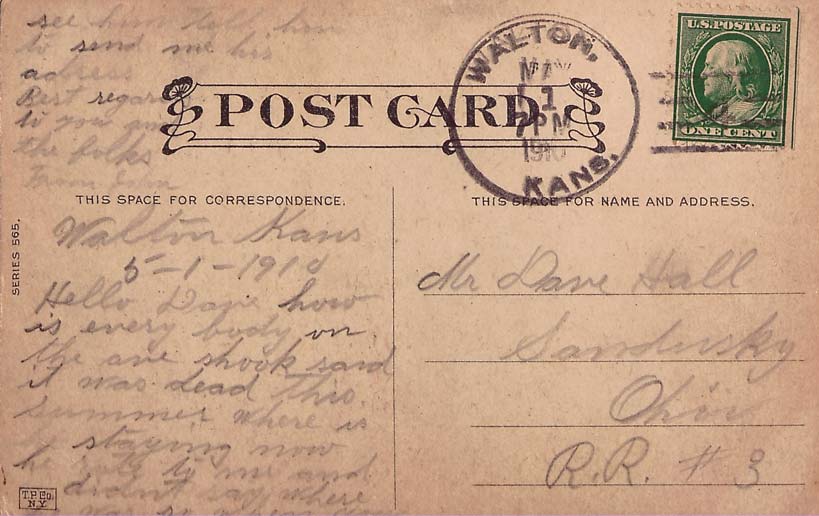 see him tell him
to send me his
adress
Best regards
to you and
the folks
From
U.S. POSTAGE
ONE CENT
WALTON,
MAY
1
7PM
1910
KANS.
POST CARD.
THIS SPACE FOR CORRESPONDENCE.
THIS SPACE FOR NAME AND ADDRESS.
SERIES 565.
Walton Kans
5-1-1910
Hello Dave how
is every body on
the ave shook said
it was dead this
summer where is
he staying now
he wrote to me and
didnt say where
he was
Mr Dave Hall
Sandusky
Ohio
R.R. # 3
T.P.&Co.
N.Y.